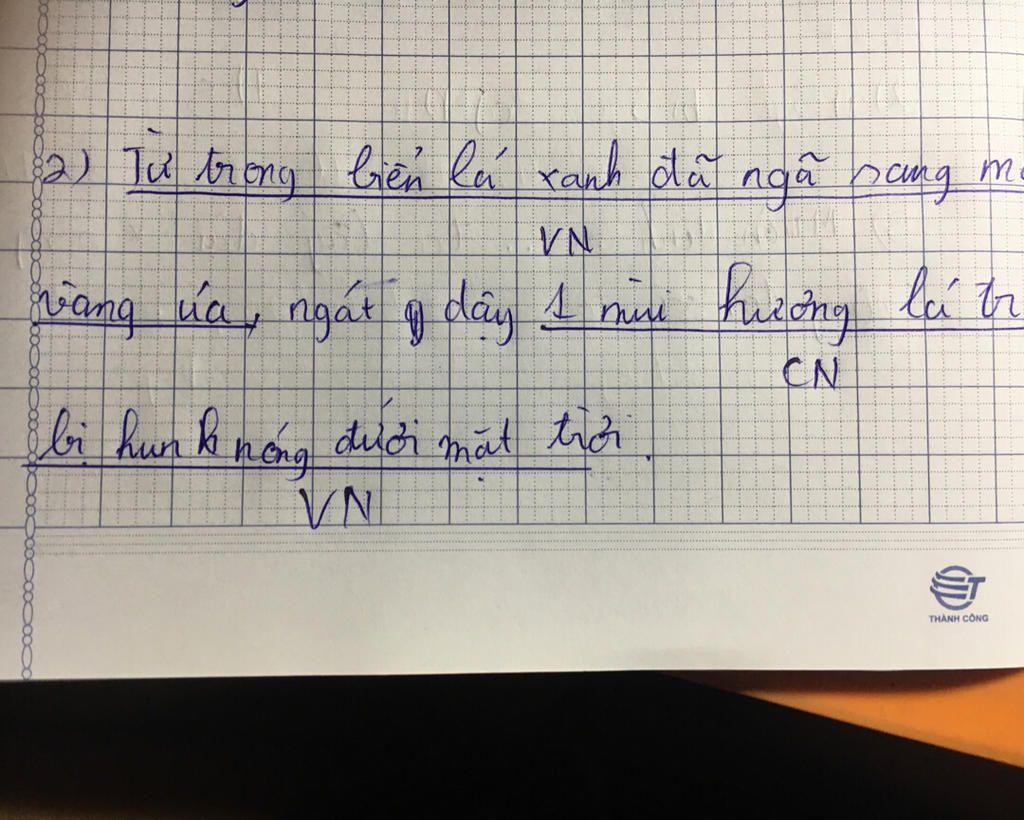 2) Từ trong biển lá xanh đã ngã sang
VN
vàng úa, ngát dậy 1 mùi hương lá
CN
bị hun nóng dưới mặt trời.
VN
ET
THÀNH CÔNG